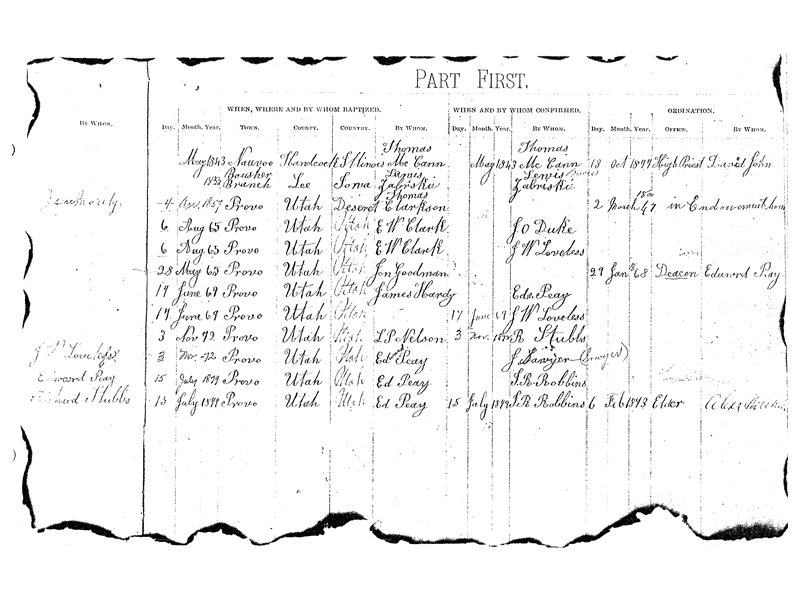 PART FIRST.
WHEN, WHERE AND BY WHOM BAPTIZED. WHEN AND BY WHOM CONFIRMED. ORDINATION.
BY WHOM. Day. Month. Year. TOWN. COUNTY. COUNTRY. BY WHOM. Day. Month. Year. BY WHOM. Day. Month. Year. OFFICE. BY WHOM.
Thomas Thomas
May 1843 Nauvoo Handcock Illinois Mc Cann May 1843 Mc Cann 13 Oct 1877 High Priest David John
Lewis Lewis
Branch Lee Iowa Zabriskie Zabriski
Thomas
4 1857 Provo Utah Deseret Clarkson 2 March 47 in Endowment
6 Aug 65 Provo Utah Utah E W Clark J O Duke
6 Aug 65 Provo Utah Utah E W Clark J W Loveless
28 May 65 Provo Utah Utah Jon Goodman 29 Jan 68 Deacon Edward Peay
17 June 69 Provo Utah Utah James Hardy Ed. Peay
17 June 69 Provo Utah Utah 17 June 69 J W Loveless
3 Nov 72 Provo Utah Utah L P Nelson 3 Nov. R Stubbs
J W Loveless 3 Nov. 72 Provo Utah Utah Ed Peay J Sawyer (Sawyer)
Edward Peay 15 July 1879 Provo Utah Utah Ed Peay S. R. Robbins
Richard Stubbs 15 July 1879 Provo Utah Utah Ed Peay 15 July 1879 S. R Robbins 6 Feb 1893 Elder